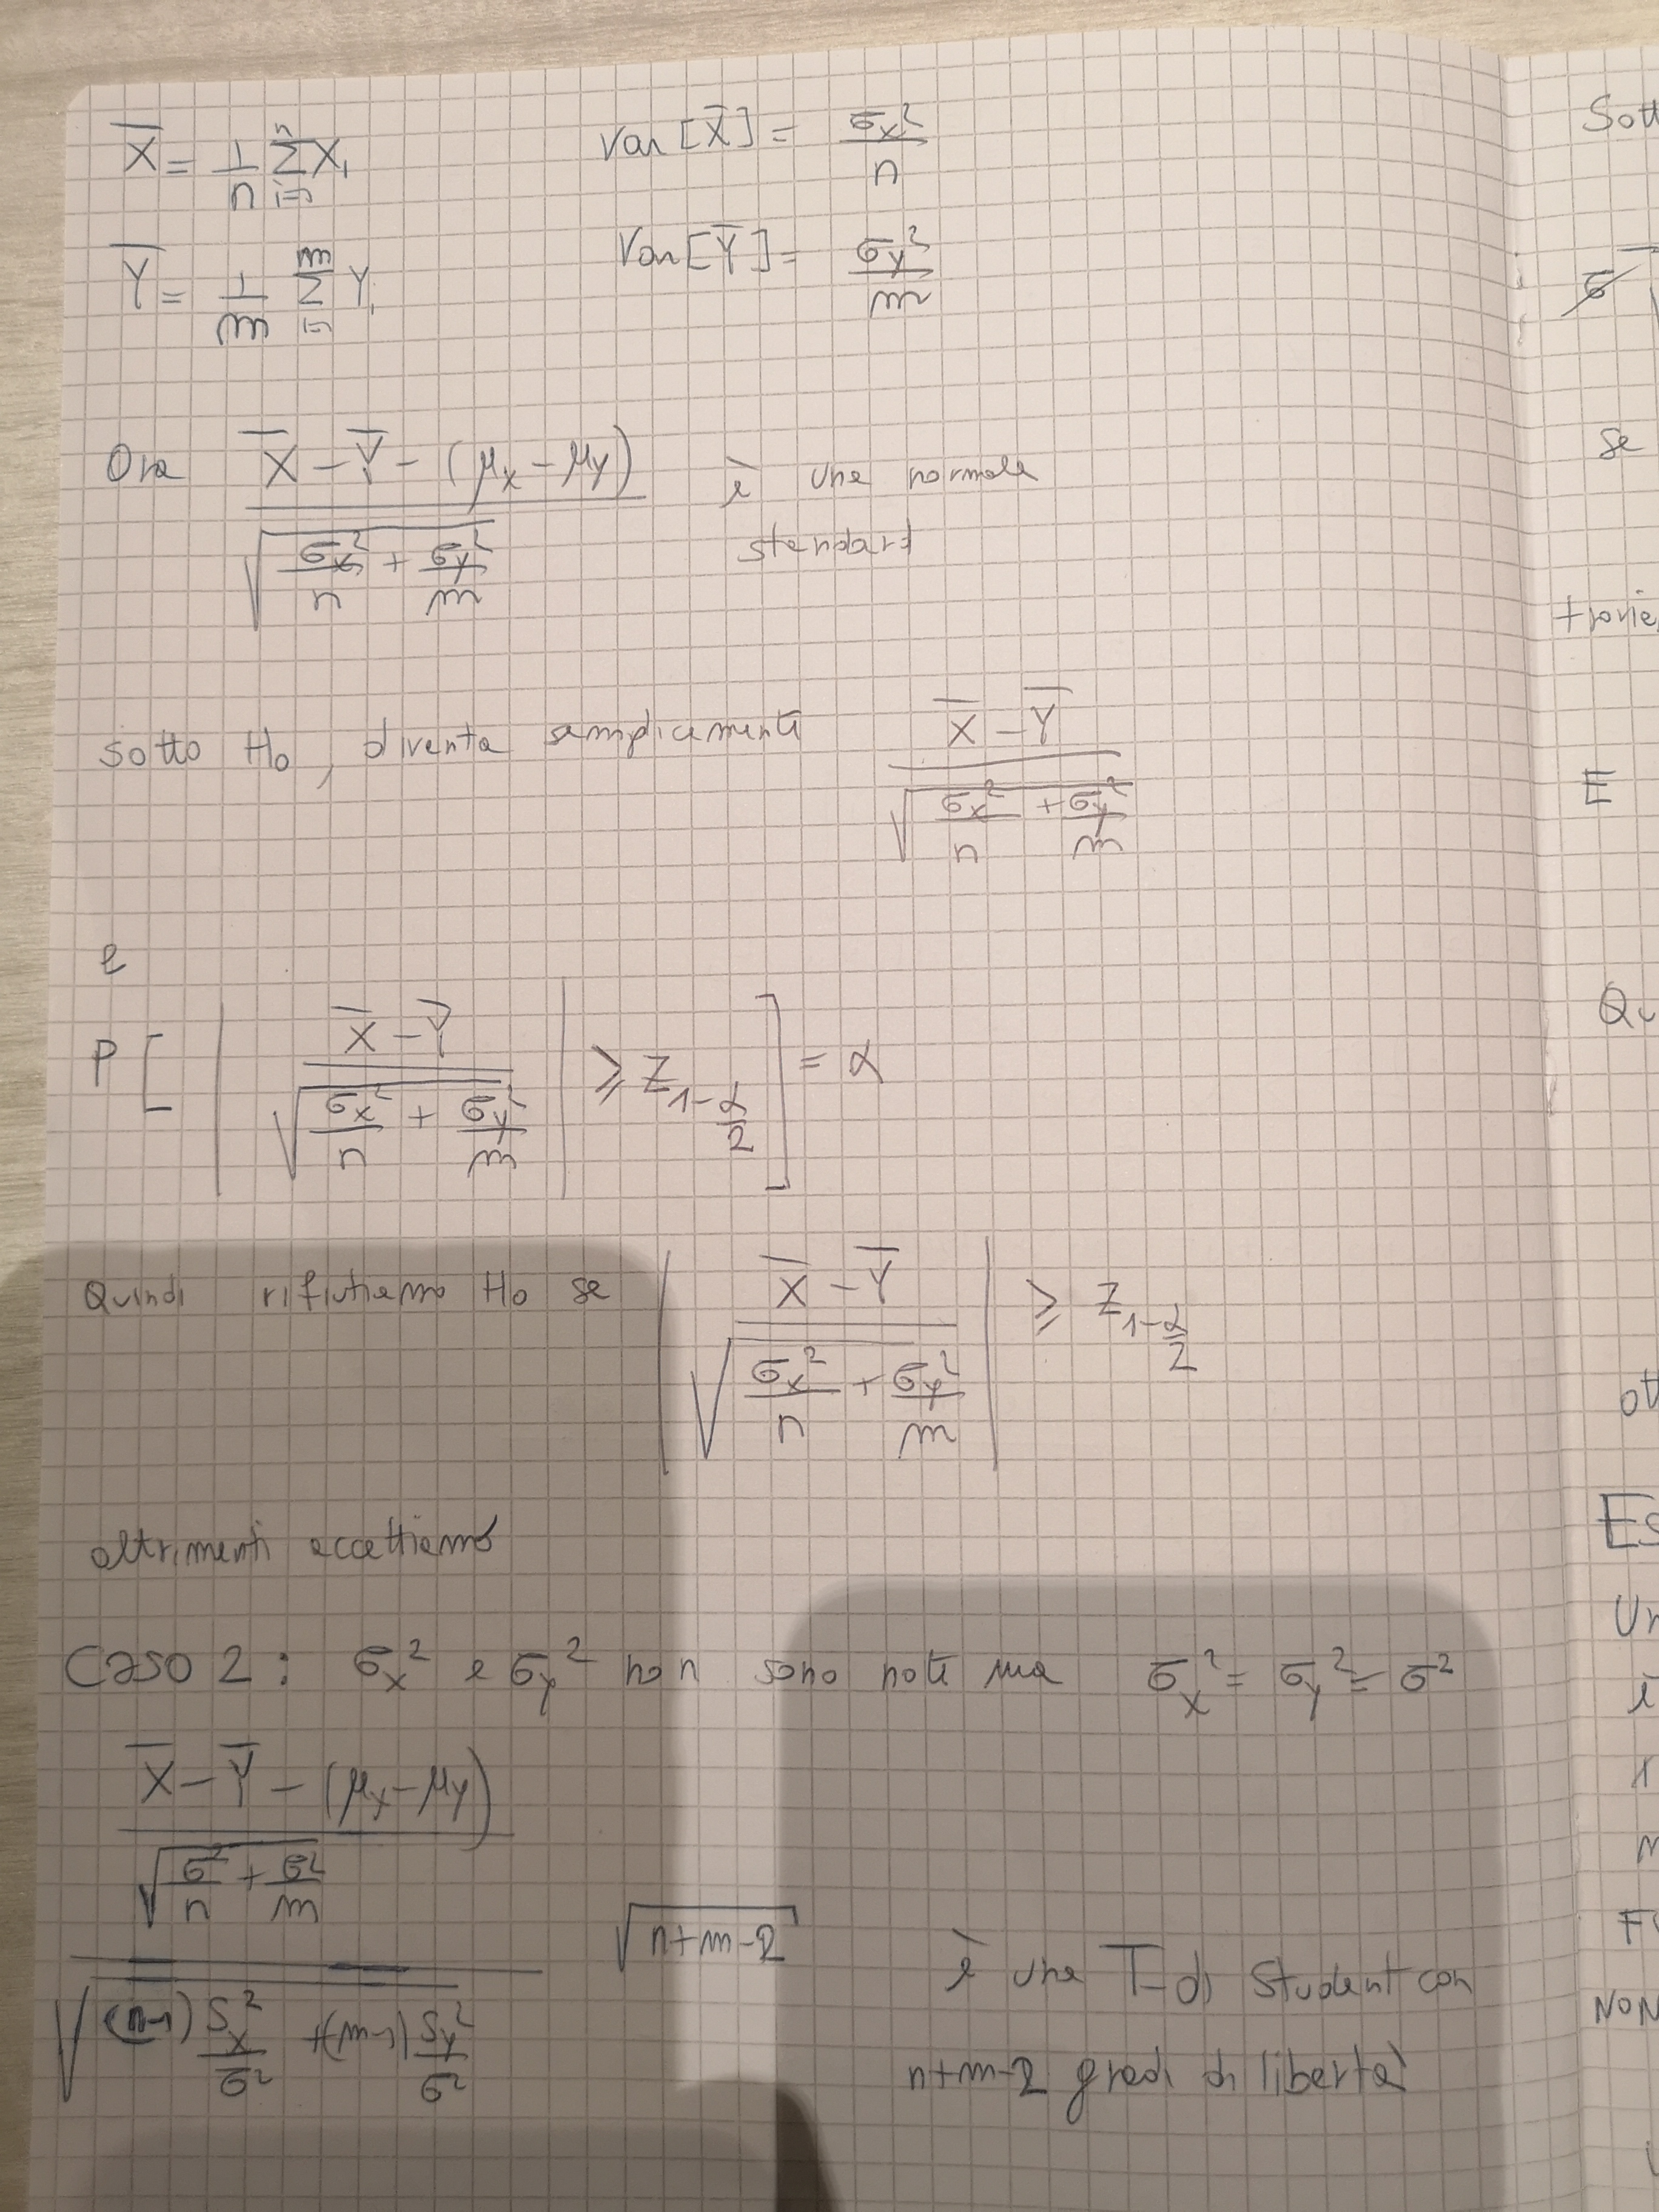 X̄ = 1/n Σ_{i=1}^{n} X_i    Var[X̄] = σ_x²/n
Ȳ = 1/m Σ_{i=1}^{m} Y_i    Var[Ȳ] = σ_y²/m
Ora (X̄ - Ȳ - (μ_x - μ_y)) / √(σ_x²/n + σ_y²/m) è una normale
standard
sotto H₀, diventa semplicemente (X̄ - Ȳ) / √(σ_x²/n + σ_y²/m)
e
P[ | (X̄ - Ȳ) / √(σ_x²/n + σ_y²/m) | ⩾ z_{1-α/2} ] = α
Quindi rifiutiamo H₀ se | (X̄ - Ȳ) / √(σ_x²/n + σ_y²/m) | ⩾ z_{1-α/2}
altrimenti accettiamo
Caso 2: σ_x² e σ_y² non sono note ma σ_x² = σ_y² = σ²
((X̄ - Ȳ - (μ_x - μ_y)) / √(σ²/n + σ²/m)) / √((n-1) S_x²/σ² + (m-1) S_y²/σ²) √(n+m-2) è una T di Student con
n+m-2 gradi di libertà
Sott
se
E
Qu
ott
Es
Un
è
NON